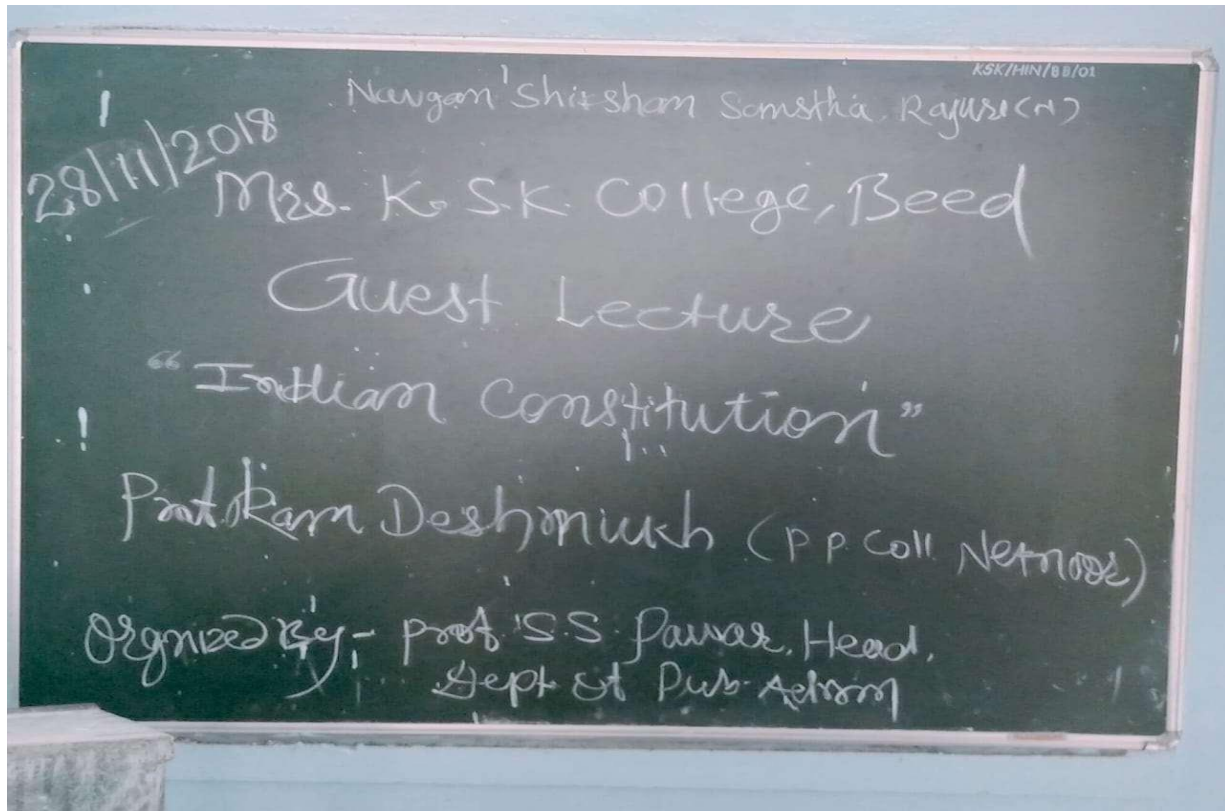 KSK/HIN/BB/01
Navgan Shikshan Samstha, Rajuri (N)
28/11/2018
Mrs. K. S. K. College, Beed
Guest Lecture
“Indian Constitution”
Deshmukh (P P. Coll
Orgnized By - Prof S.S. Pawar, Head,
Dept of Pub. Admn